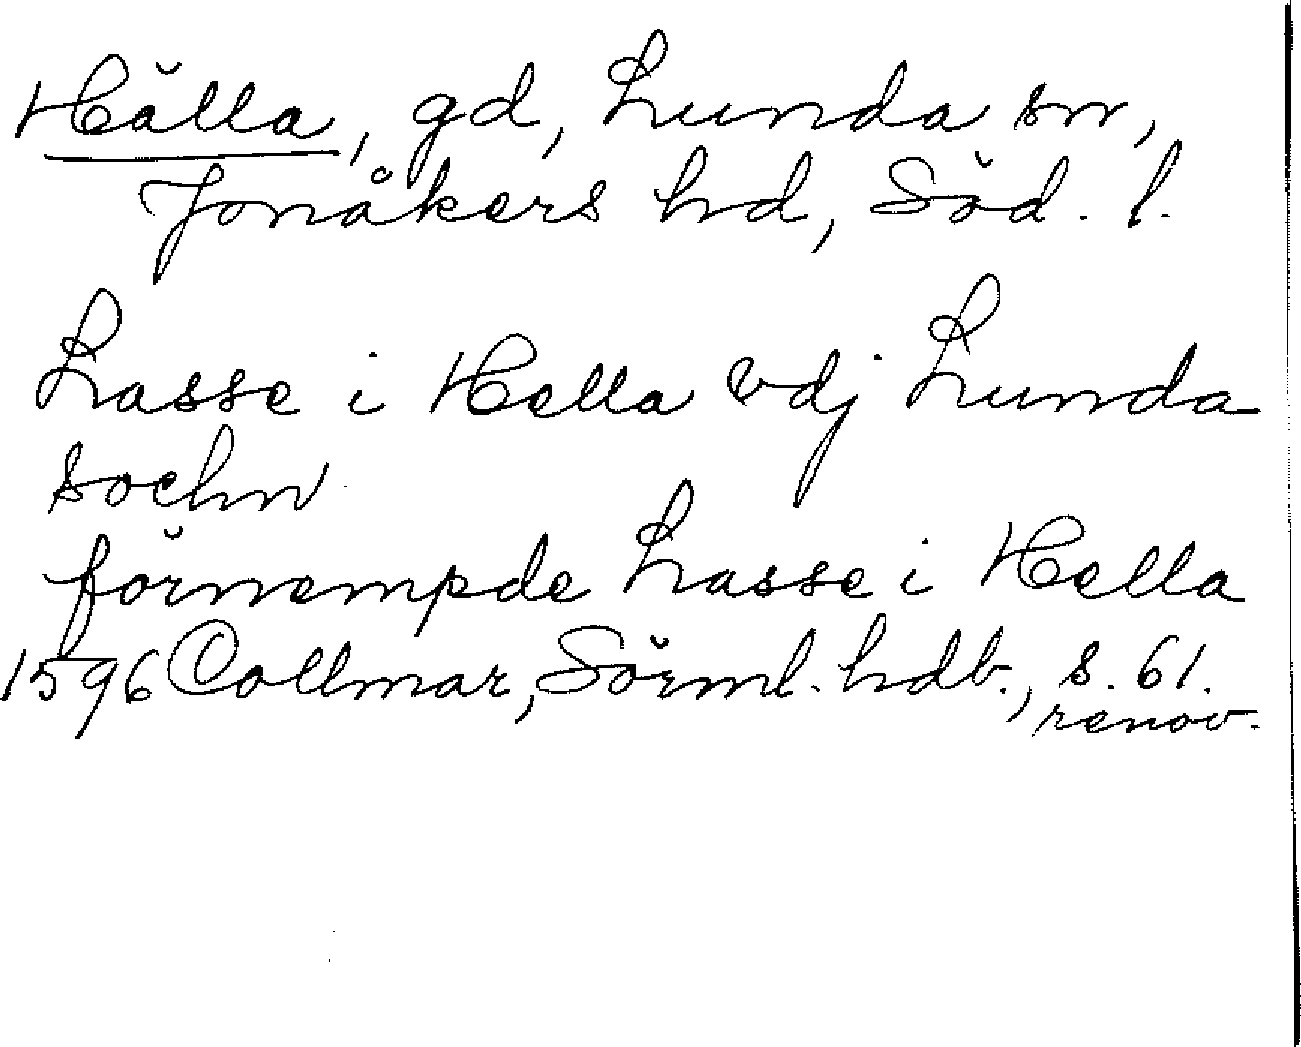 Hälla, gd, Lunda sn,
Jonåkers hd, Söd. l.
Lasse i Hella vdj Lunda
sochn
förnempde Lasse i Hella
1596 Collmar, Sörml. hdb., s. 61.
renov.